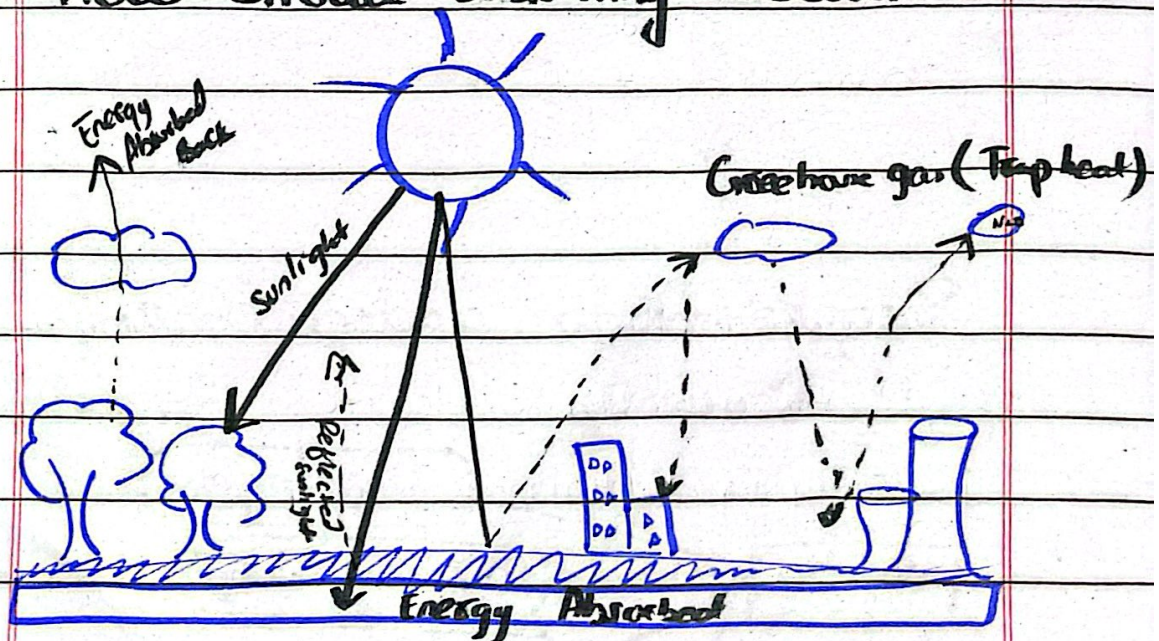 Energy
Absorbed
Back
Greehouse gas (Trap heat)
N2O
Sunlight
Reflected
sunlight
Energy Absorbed